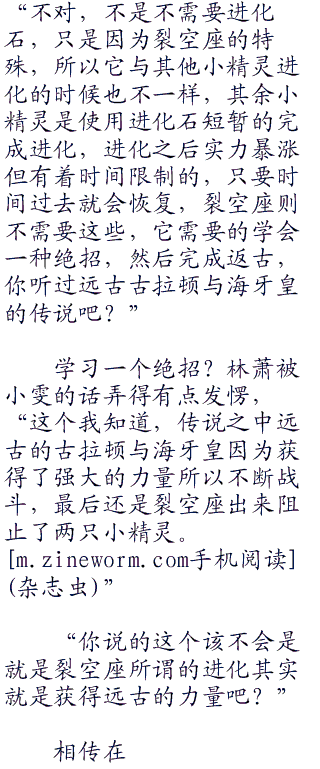 “不对，不是不需要进化
石，只是因为裂空座的特
殊，所以它与其他小精灵进
化的时候也不一样，其余小
精灵是使用进化石短暂的完
成进化，进化之后实力暴涨
但有着时间限制的，只要时
间过去就会恢复，裂空座则
不需要这些，它需要的学会
一种绝招，然后完成返古，
你听过远古古拉顿与海牙皇
的传说吧？”
学习一个绝招？林萧被
小雯的话弄得有点发愣，
“这个我知道，传说之中远
古的古拉顿与海牙皇因为获
得了强大的力量所以不断战
斗，最后还是裂空座出来阻
止了两只小精灵。
[m.zineworm.com手机阅读]
(杂志虫)”
“你说的这个该不会是
就是裂空座所谓的进化其实
就是获得远古的力量吧？”
相传在